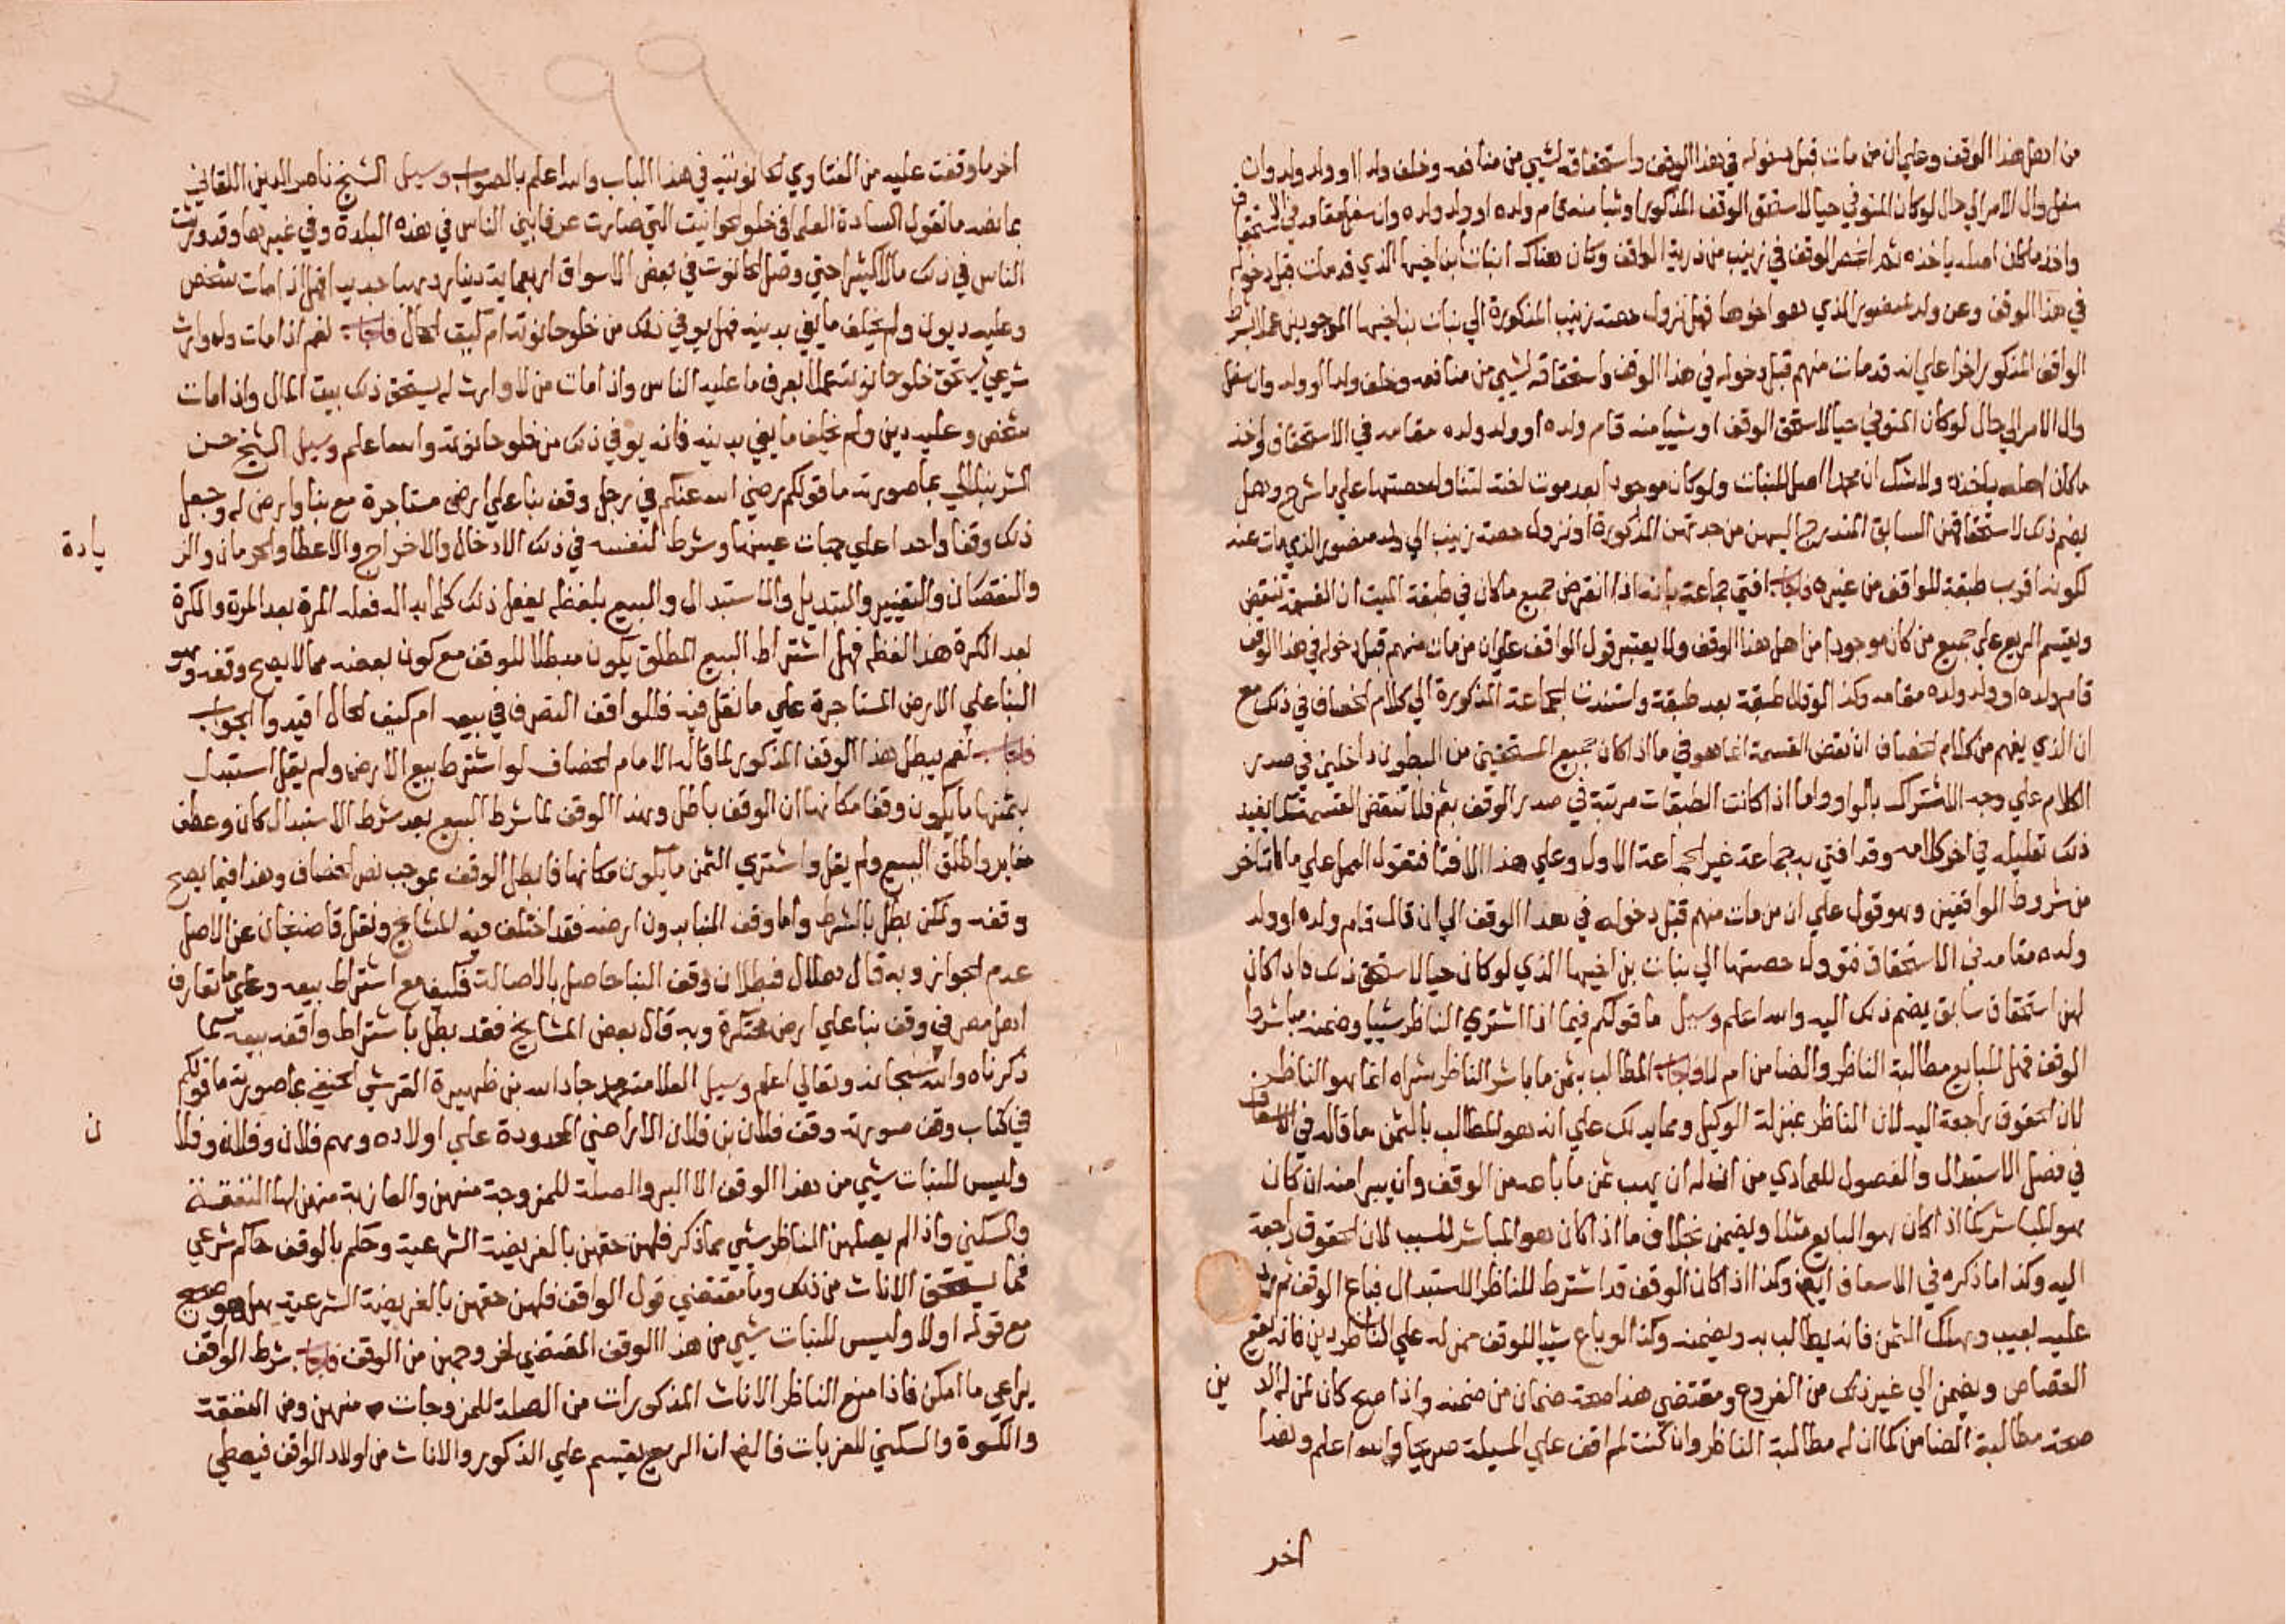 من اهل هذا الوقف وعلي ان من مات قبل دخوله في هذا الوقف واستحقاقه لشيي من منافعه وخلف ولدا او ولد ولد وان
سفل وال الامر الي حال لو كان المتوفي حيا لاستحق الوقف المذكور او شيا منه قام ولده او ولد ولده وان سفل مقامه في الاستحقاق
واخذ ما كان اصله ياخذه ثم انحصر الوقف في زينب من ذرية الواقف وكان هناك ابنات ابن اخيها الذي قد مات قبل دخوله
في هذا الوقف وعن ولد منصور الذي هو اخوها فهل تزول حصة زينب المذكورة الي بنات ابن اخيها الموجودين عملا بشرط
الواقف المذكور اخرا علي انه قد مات منهم قبل دخوله في هذا الوقف واستحقاقه لشيي من منافعه وخلف ولدا او ولد وان سفل
وال الامر الي حال لو كان المتوفي حيا لاستحق الوقف او شييا منه قام ولده او ولد ولده مقامه في الاستحقاق واخذ
ما كان اصله ياخذه ولا شك ان هذا اصل للبنات ولو كان موجودا بعد موت اخته لتناول حصتها علي ما شرح وهل
يضم ذلك لاستحقاقهن السابق المندرج اليهن من جدتهن المذكورة او تزول حصة زينب الي ولد منصور الذي مات عنه
لكونه اقرب طبقة للواقف من غيره فاجاب افتي جماعة بانه اذا انقرض جميع ما كان في طبقة الميت ان القسمة تنتقض
ويقسم الريع علي جميع من كان موجودا من اهل هذا الوقف ولا يعتبر قول الواقف علي ان من مات منهم قبل دخوله في هذا الوقف
قام ولده او ولد ولده مقامه وكذا لو قال طبقة بعد طبقة واستندت الجماعة المذكورة الي كلام الخصاف في ذلك مع
ان الذي يفهم من كلام الخصاف ان نقض القسمة انما هو في ما اذا كان جميع المستحقين من البطون داخلين في صدر
الكلام علي وجه الاشتراك بالواو واما اذا كانت الطبقات مرتبة في صدر الوقف بثم فلا تنتقض القسمة كما يفيد
ذلك تعليله في اخر كلامه وقد افتي به جماعة غير الجماعة الاول وعلي هذا الافتا فتقول العمل علي ما تاخر
من شروط الواقفين وهو قول علي ان من مات منهم قبل دخوله في هذا الوقف الي ان قال قام ولده او ولد
ولده مقامه في الاستحقاق فتوول حصتها الي بنات بن اخيها الذي لو كان حيا لاستحق ذلك واذا كان
لهن استحقاق سابق يضم ذلك اليه والله اعلم وسيل ما قولكم فيما اذا اشتري الناظر شييا وضمنه مباشروا
الوقف فهل للبايع مطالبة الناظر والضامن ام لا فاجاب المطالب بثمن ما باشر الناظر بشراه انما هو الناظر
لان الحقوق راجعة اليه لان الناظر بمنزلة الوكيل ومما يدلك علي انه هو المطالب بالثمن ما قاله في الاسعاف
في فصل الاستبدال والفصول للعمادي من انه له ان يهب ثمن ما باعه من الوقف وان يبرا منه ان كان
هو المباشر كما اذا كان هو البايع مثلا ويضمن بخلاف ما اذا كان هو المباشر للسبب لان الحقوق راجعة
اليه وكذا ما ذكره في الاسعاف ايضا وكذا اذا كان الوقف قد اشترط للناظر الاستبدال فباع الوقف ثم رد
عليه بعيب وهلك الثمن فانه يطالب به ويضمنه وكذا لو باع شييا للوقف ممن له علي الناظر دين فانه يقع
القصاص ويضمن الي غير ذلك من الفروع ومقتضي هذا صحة ضمان من ضمنه واذا صح كان لمن له الد ين
صحة مطالبة الضامن كما ان له مطالبة الناظر وان كنت لم اقف علي المسيلة صريحا والله اعلم وهذا
اخر
١٩٩
اخر ما وقفت عليه من الفتاوي الحانوتيه في هذا الباب والله اعلم بالصواب وسيل الشيخ ناصر الدين اللقاني
بما نصه ما تقول السادة العلما في خلو الحوانيت التي صارت عرفا بين الناس في هذه البلدة وفي غيرها وقد ورثت
الناس في ذلك مالا كثيرا حتي وصل الحانوت في بعض الاسواق اربعماية دينار ذهبا جديدا فهل اذا مات شخص
وعليه ديون ولم يخلف ما يفي بدينه فهل يوفي ذلك من خلو حانوته ام كيف الحال فاجاب نعم اذا مات وله وارث
شرعي يستحق خلو حانوته عملا بعرف ما عليه الناس واذا مات من لا وارث له يستحق ذلك بيت المال واذا مات
شخص وعليه دين ولم يخلف ما يفي بدينه فانه يوفي ذلك من خلو حانوته والله اعلم وسيل الشيخ حسن
الشرنبلالي بما صورته ما قولكم رضي الله عنكم في رجل وقف بنا علي ارض مستاجرة مع بنا وارض له وجعل
ذلك وقفا واحدا علي جهات عينها وشرط لنفسه في ذلك الادخال والاخراج والاعطا والحرمان والز يادة
والنقصان والتغيير والتبديل والاستبدال والبيع بلفظه يفعل ذلك كلما بدا له فعله المرة بعد المرة والكرة
بعد الكرة هذا لفظه فهل اشتراط البيع المطلق يكون مبطلا للوقف مع كون بعضه مما لا يصح وقفه وهو
البنا علي الارض المستاجرة علي ما نقل فيه فللواقف التصرف في بيعه ام كيف الحال افيدوا الجواب
فاجاب نعم يبطل هذا الوقف المذكور لما قاله الامام الخصاف لو اشترط بيع الارض ولم يقل استبدل
بثمنها ما يكون وقفا مكانها ان الوقف باطل وهذا الوقف لما شرط البيع بعد شرط الاستبدال كان وعطف
مغاير واطلق البيع ولم يقل واشتري الثمن ما يكون مكانها فابطل الوقف بموجب نص الخصاف وهذا فيما يصح
وقفه ولكن بطل بالشرط واما وقف البنا بدون ارضه فقد اختلف فيه المشايخ ونقل قاضيخان عن الاصل
عدم الجواز وبه قال هلال فبطلان وقف البنا حاصل بالاصالة فكيف مع اشتراط بيعه وعلي ما تعارف
اهل مصر في وقف بنا علي ارض محتكرة وبه قال بعض المشايخ فقد بطل باشتراط واقفه بيعه كما
ذكرناه والله سبحانه وتعالي اعلم وسيل العلامة محمد جاد الله بن ظهيرة القرشي الحنفي بما صورته ما قولكم
في كتاب وقف صورته وقف فلان بن فلان الاراضي المحدودة علي اولاده وهم فلان وفلانه وفلا ن
وليس للبنات شيي من هذا الوقف الا البر والصلة للمزوجة منهن والعازبة منهن لها النفقة
والسكني واذا لم يصلهن الناظر بشيي مما ذكر فلهن حقهن بالفريضة الشرعية وحكم بالوقف حاكم شرعي
فما يستحق الاناث من ذلك وما مقتضي قول الواقف فلهن حقهن بالفريضة الشرعية وهل هو صحيح
مع قوله اولا وليس للبنات شيي من هذا الوقف المقتضي لخروجهن من الوقف فاجاب شرط الواقف
يراعي ما امكن فاذا منع الناظر الاناث المذكورات من الصلة للمزوجات منهن ومن النفقة
والكسوة والسكني للعزبات فالظ ان الريع يقسم علي الذكور والاناث من اولاد الواقف فيعطي